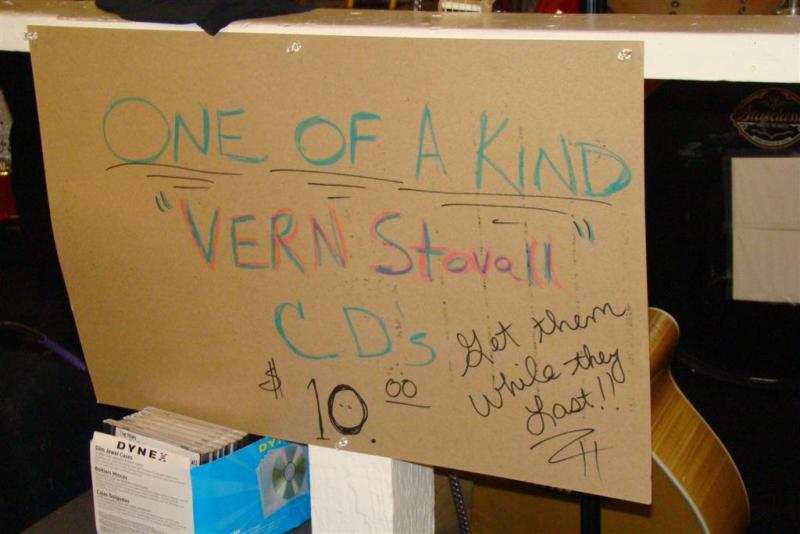 ONE OF A KIND
"VERN Stovall"
CD's
$ 10.00
Get them
While they
Last!!
DYNEX
Slim Jewel Cases
Boîtiers Minces
Cajas Delgadas
DY